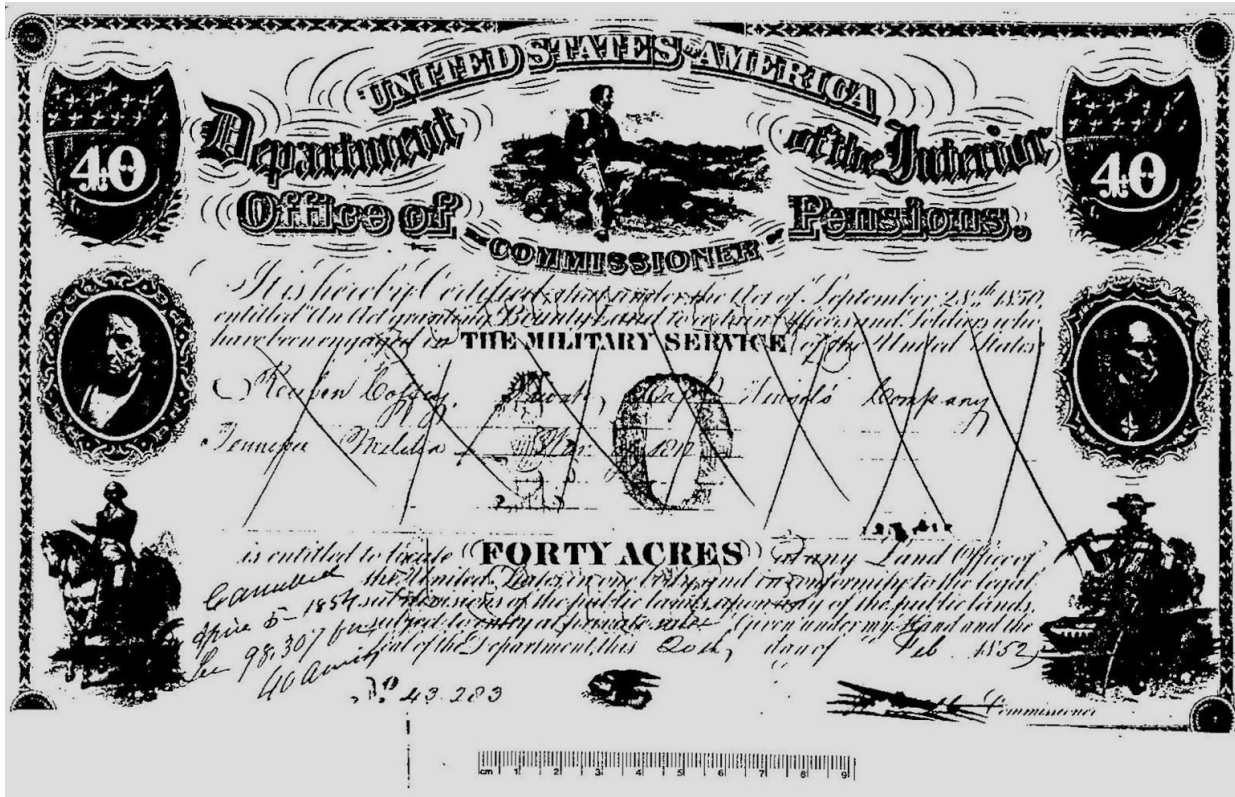 UNITED STATES OF AMERICA
Department of the Interior
40 40
Office of Pensions.
COMMISSIONER
It is hereby Certified that under the Act of September 28th 1850,
entitled "An Act granting Bounty Land to certain Officers and Soldiers who
have been engaged in THE MILITARY SERVICE of the United States"
Reuben Coffey, Private, Capt Company
Tennessee Militia War
40
is entitled to locate FORTY ACRES at any Land Office of
the United States in one body, and in conformity to the legal
subdivisions of the public lands, upon any of the public lands,
subject to entry at private sale. Given under my Hand and the
Seal of the Department, this 20th, day of Feb 1852,
Cancelled
April 5 1854
See 98.307 for
40 acres
No 43.283
Commissioner
cm 1 2 3 4 5 6 7 8 9